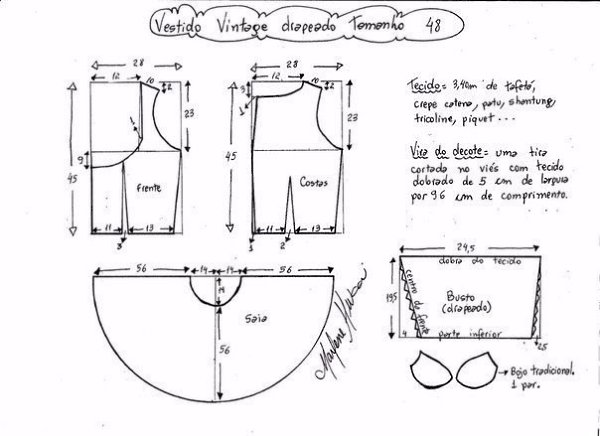 Vestido Vintage drapeado Tamanho 48
28
12
10
2
23
45
9
1
Frente
11
13
3
28
12
10
3
2
1
23
45
Costas
11
13
1
2
Tecido = 3,40m de tafetá,
crepe catena, patu, shantung,
tricoline, piquet ...
Vira do decote = uma tira
cortada no viés com tecido
dobrado de 5 cm de largura
por 96 cm de comprimento.
56
14
14
56
14
Saia
56
Marlene Mukai
29,5
dobra do tecido
19,5
centro da frente
Busto
(drapeado)
4
parte inferior
2,5
Bojo tradicional.
1 par.